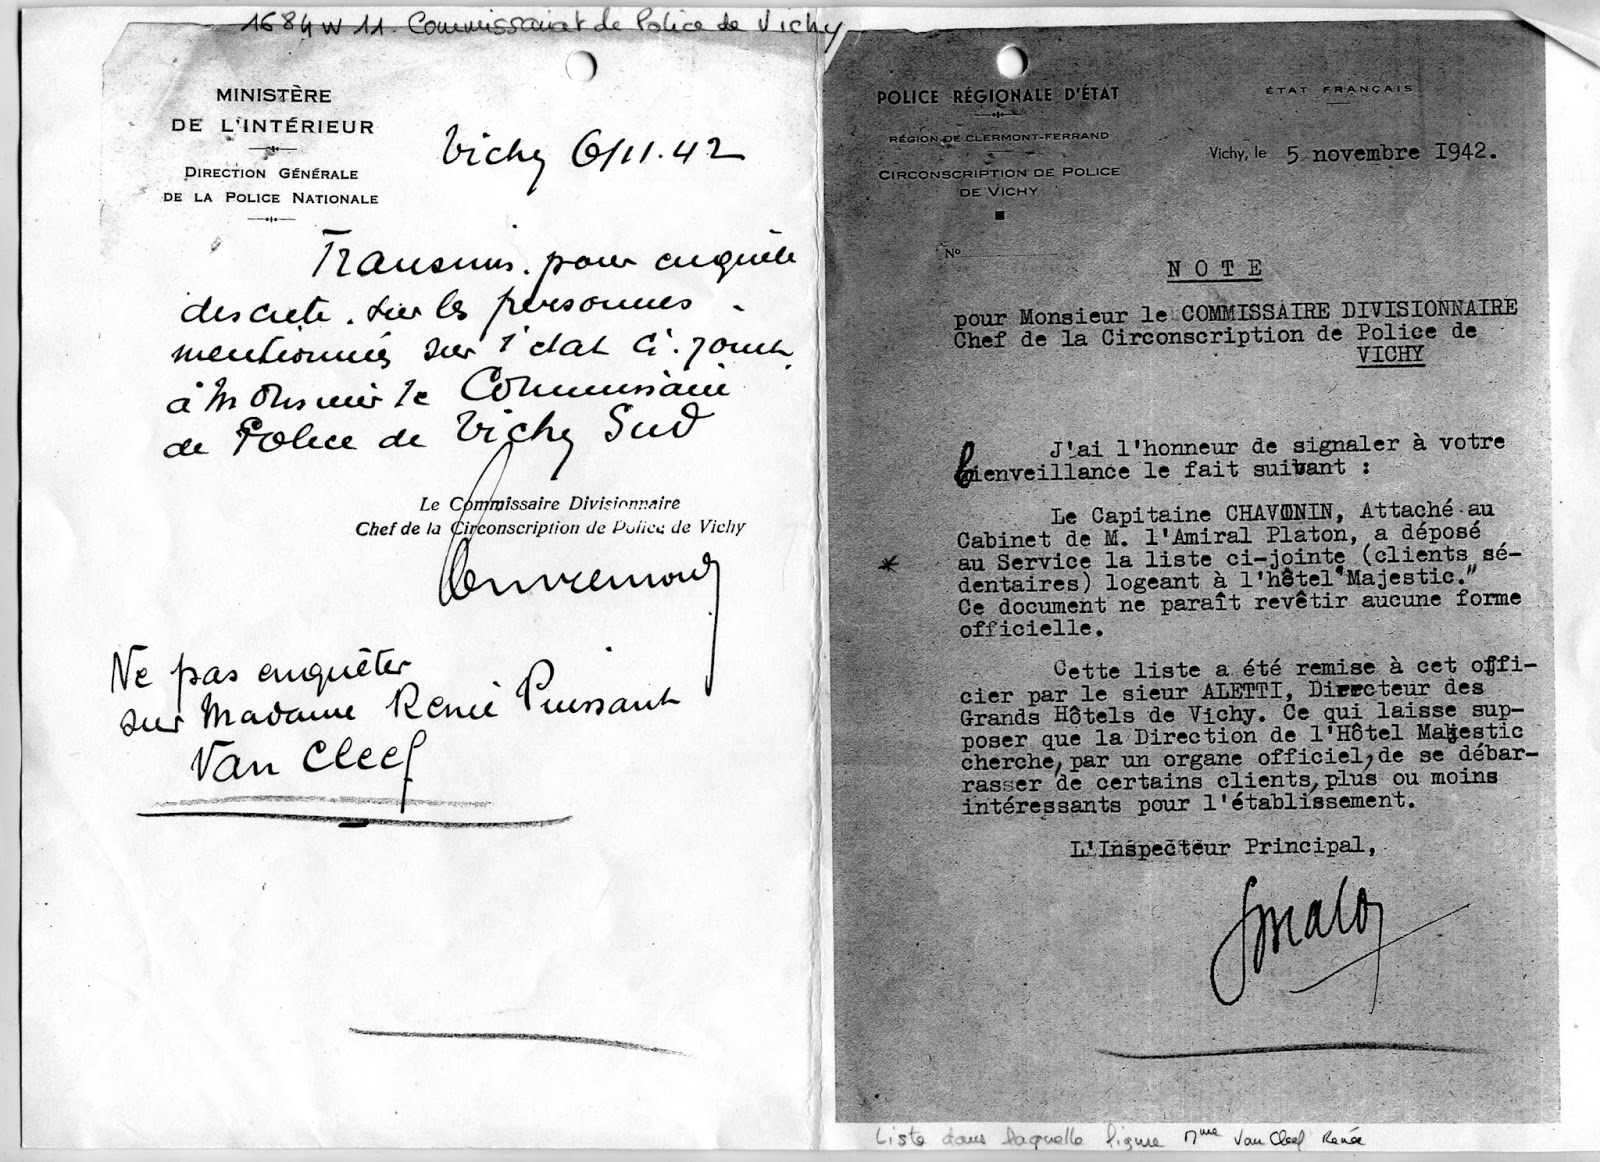 1684 W 11. Commissariat de Police de Vichy
MINISTÈRE
DE L'INTÉRIEUR
DIRECTION GÉNÉRALE
DE LA POLICE NATIONALE
Vichy 6/11.42
Transmis. pour enquête
discrète. sur les personnes
mentionnées sur l'état ci-joint
à Monsieur le Commissaire
de Police de Vichy Sud
Le Commissaire Divisionnaire
Chef de la Circonscription de Police de Vichy
Ne pas enquêter
sur Madame Renée Puissant
Van Cleef
POLICE RÉGIONALE D'ÉTAT
RÉGION DE CLERMONT-FERRAND
CIRCONSCRIPTION DE POLICE
DE VICHY
N°
ÉTAT FRANÇAIS
Vichy, le 5 novembre 1942.
NOTE
pour Monsieur le COMMISSAIRE DIVISIONNAIRE
Chef de la Circonscription de Police de
VICHY
J'ai l'honneur de signaler à votre
bienveillance le fait suivant :
Le Capitaine CHAVONIN, Attaché au
Cabinet de M. l'Amiral Platon, a déposé
au Service la liste ci-jointe (clients sé-
dentaires) logeant à l'hôtel "Majestic."
Ce document ne paraît revêtir aucune forme
officielle.
Cette liste a été remise à cet offi-
cier par le sieur ALETTI, Directeur des
Grands Hôtels de Vichy. Ce qui laisse sup-
poser que la Direction de l'Hôtel Majestic
cherche, par un organe officiel, de se débar-
rasser de certains clients, plus ou moins
intéressants pour l'établissement.
L'Inspecteur Principal,
Liste dans laquelle figure Mme Van Cleef Renée